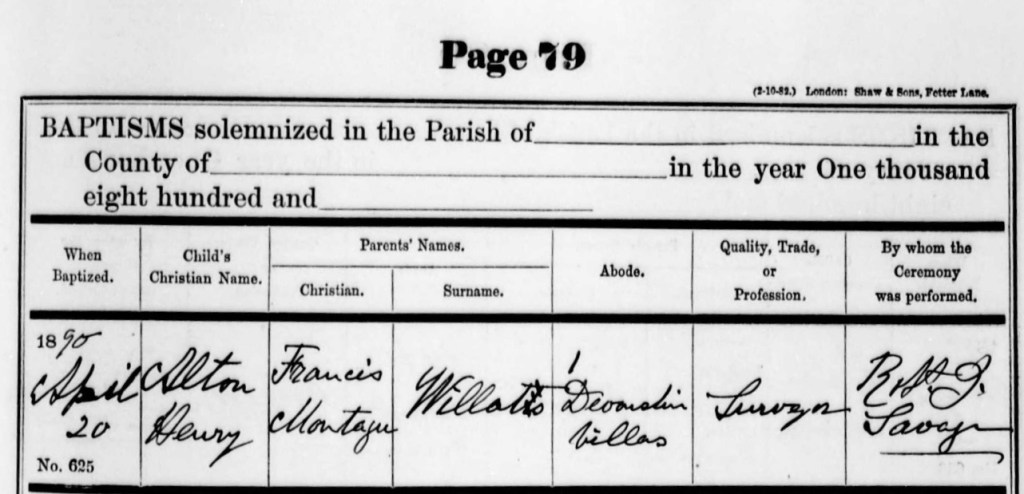 Page 79
(2-10-82.) London: Shaw & Sons, Fetter Lane.
BAPTISMS solemnized in the Parish of in the
County of in the year One thousand
eight hundred and
When Baptized.
Child's Christian Name.
Parents' Names.
Christian.
Surname.
Abode.
Quality, Trade, or Profession.
By whom the Ceremony was performed.
1890
April
20
No. 625
Alton
Henry
Francis
Montagu
Willatts
1
Devonshire
Villas
Surveyor
Robt J.
Savage